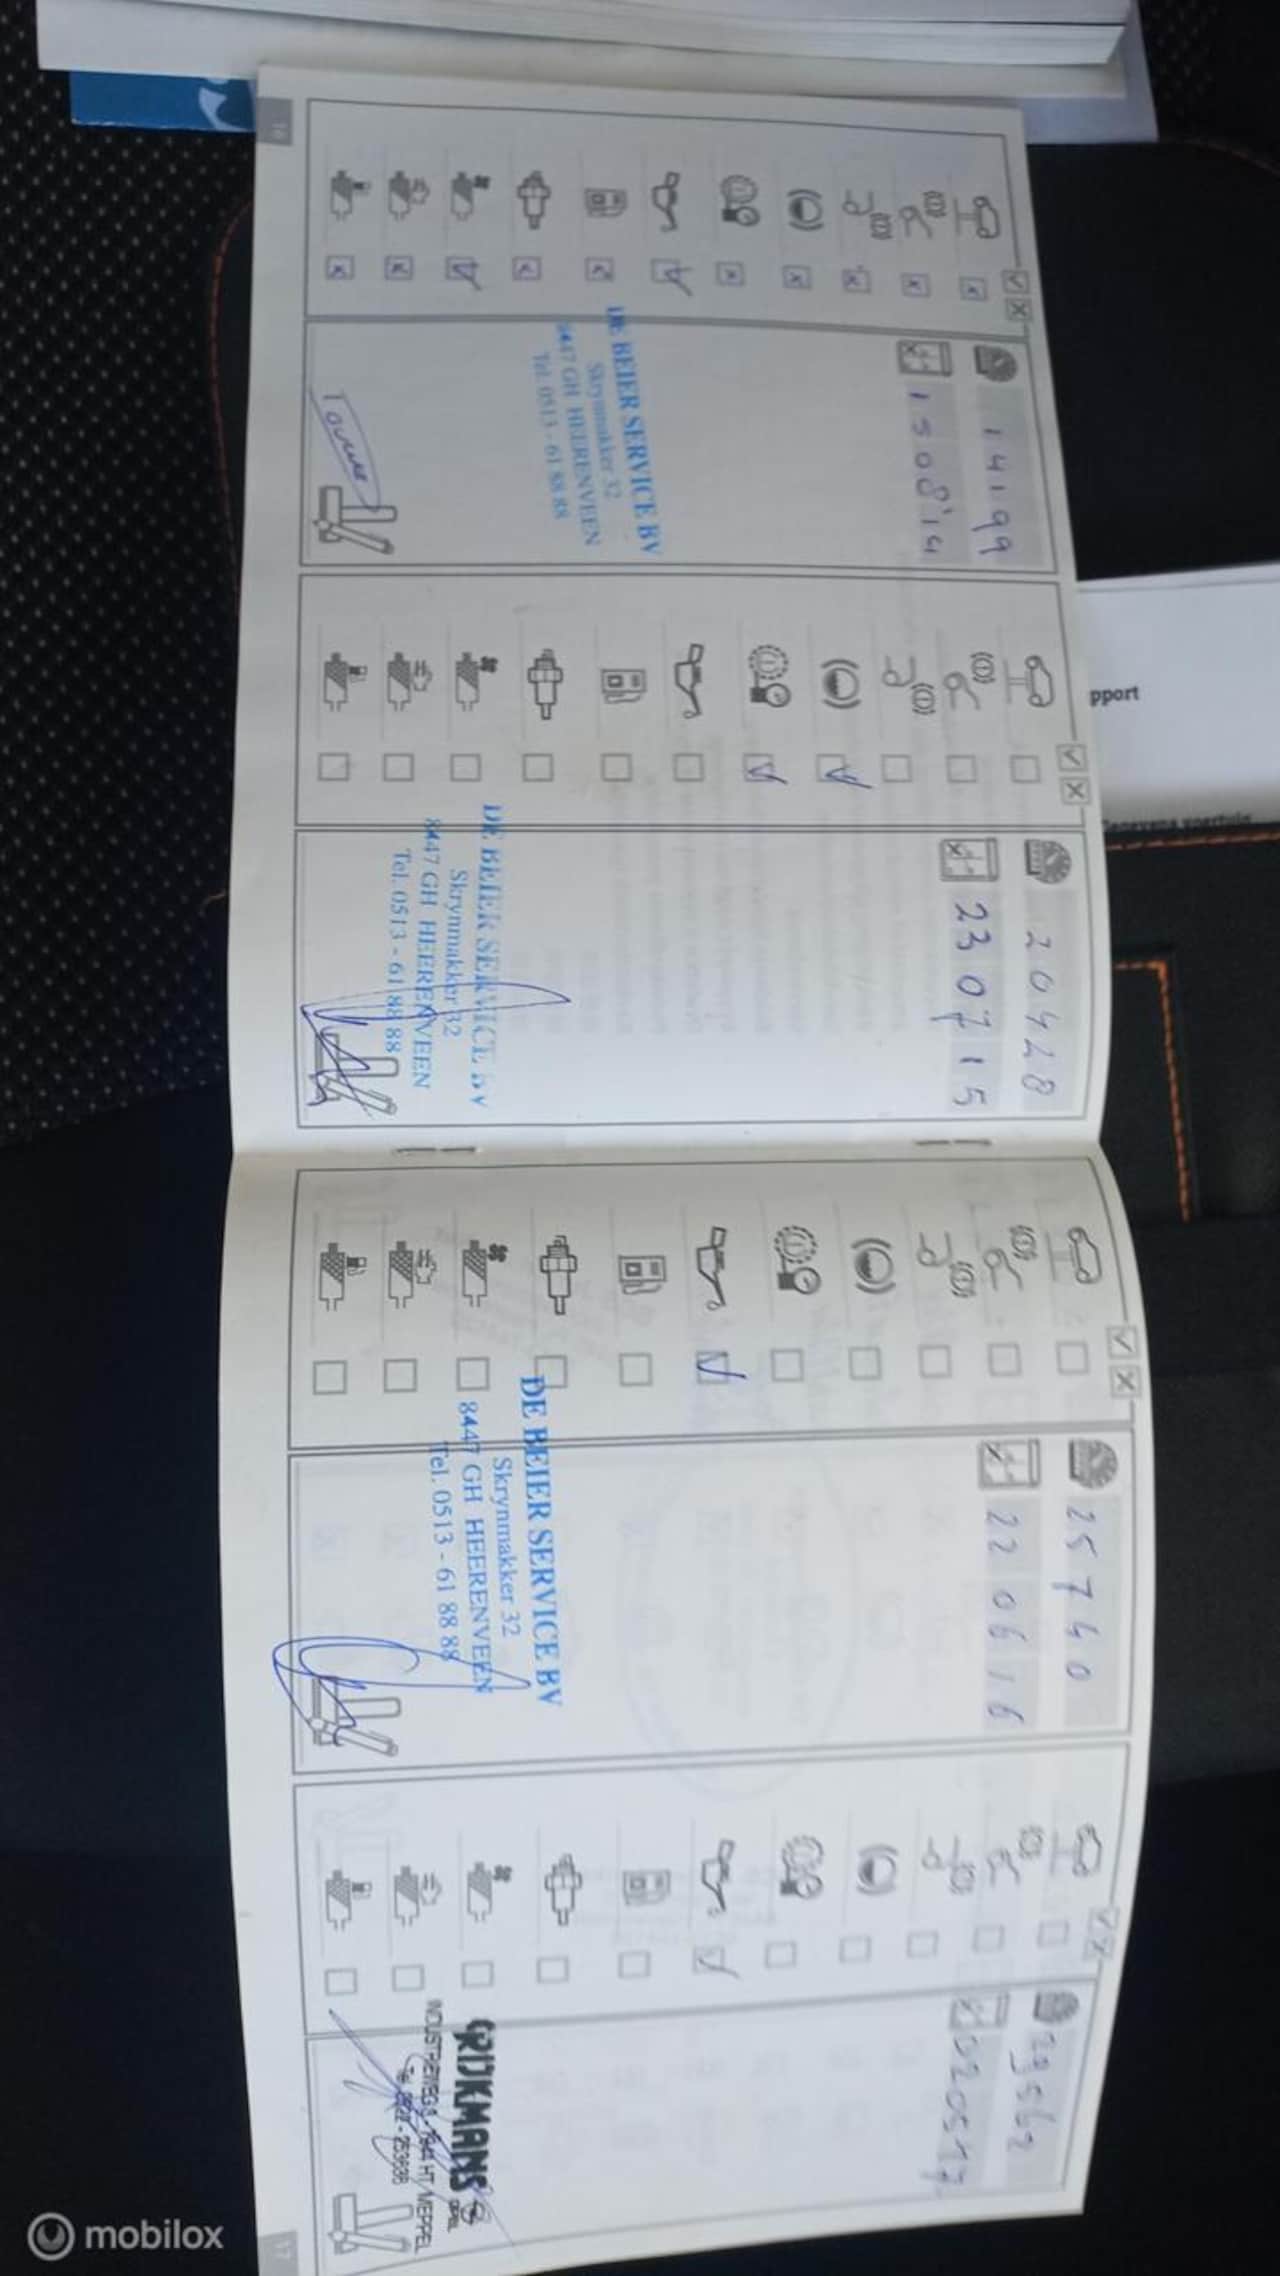 16
14199
15 08'14
DE BEIER SERVICE BV
Skrynmakker 32
8447 GH HEERENVEEN
Tel. 0513 - 61 88 88
20428
23 07 15
DE BEIER SERVICE BV
Skrynmakker 32
8447 GH HEERENVEEN
Tel. 0513 - 61 88 88
25740
22 06 16
DE BEIER SERVICE BV
Skrynmakker 32
8447 GH HEERENVEEN
Tel. 0513 - 61 88 88
02 05 17
INDUSTRIEWEG
HT MEPPEL
17
pport
mobilox